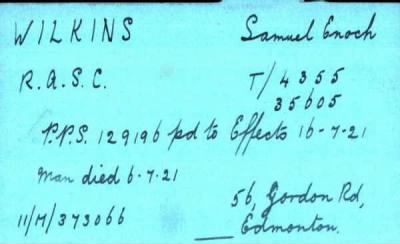 WILKINS Samuel Enoch
R.A.S.C. T/4355
35605
P.P.S. 129196 pd to Effects 16-7-21
Man died 6-7-21
11/M/373066 56, Gordon Rd,
Edmonton.